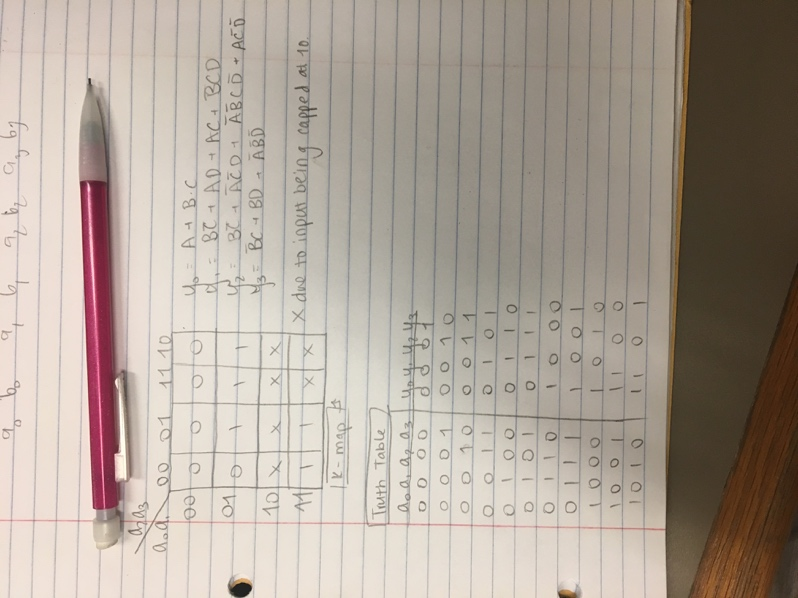 a₀ b₀ a₁ b₁ a₂ b₂ a₃ b₃
a₂a₃
a₀a₁ 00 01 11 10
00 0 0 0 0
01 0 1 1 1
10 X X X X
11 1 1 X X
y₀ = A + B·C
y₁ = BC̅ + AD + AC + BCD
y₂ = BC̅ + A̅C̅D + A̅BCD̅ + AC̅D̅
y₃ = B̅C + BD + A̅B̅D̅
X due to input being capped at 10.
K-map
Truth Table
a₀ a₁ a₂ a₃ y₀ y₁ y₂ y₃
0 0 0 0 0 0 0 1
0 0 0 1 0 0 1 0
0 0 1 0 0 0 1 1
0 0 1 1 0 1 0 1
0 1 0 0 0 1 1 0
0 1 0 1 0 1 1 1
0 1 1 0 1 0 0 0
0 1 1 1 1 0 0 1
1 0 0 0 1 0 1 0
1 0 0 1 1 1 0 0
1 0 1 0 1 1 0 1